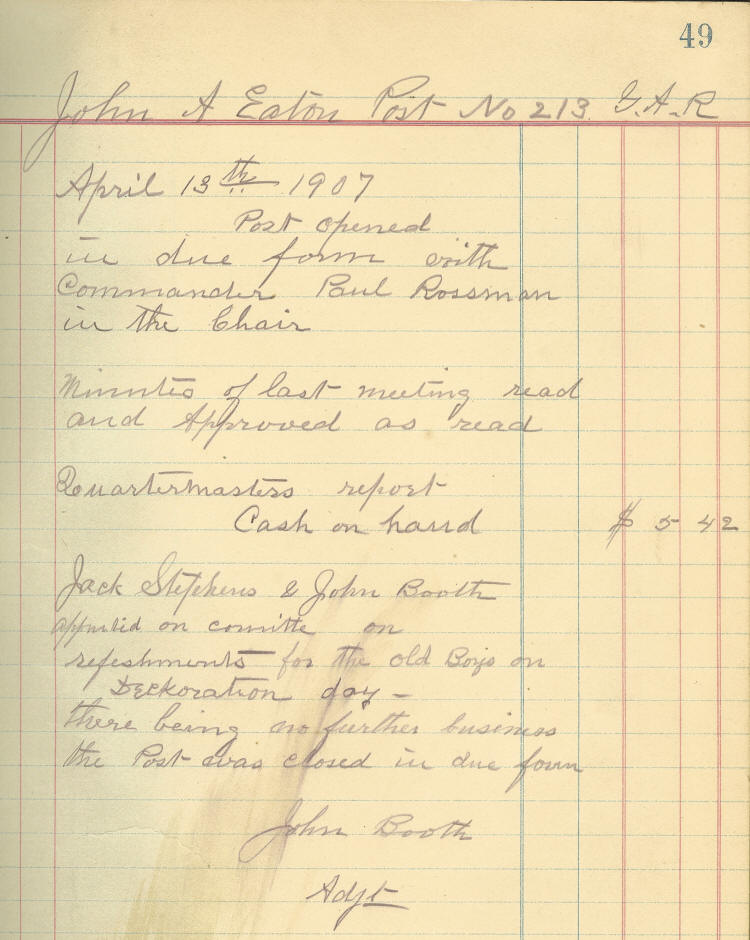 49
John A Eaton Post No 213 G.A.R
April 13th 1907
Post opened
in due form with
Commander Paul Rossman
in the Chair
Minutes of last meeting read
and Approved as read
Quartermasters report
Cash on hand $ 5 42
Jack Stephens & John Booth
appinted on comitte on
refeshments for the old Boys on
Deckoration day -
there being no further business
the Post was closed in due form
John Booth
Adjt